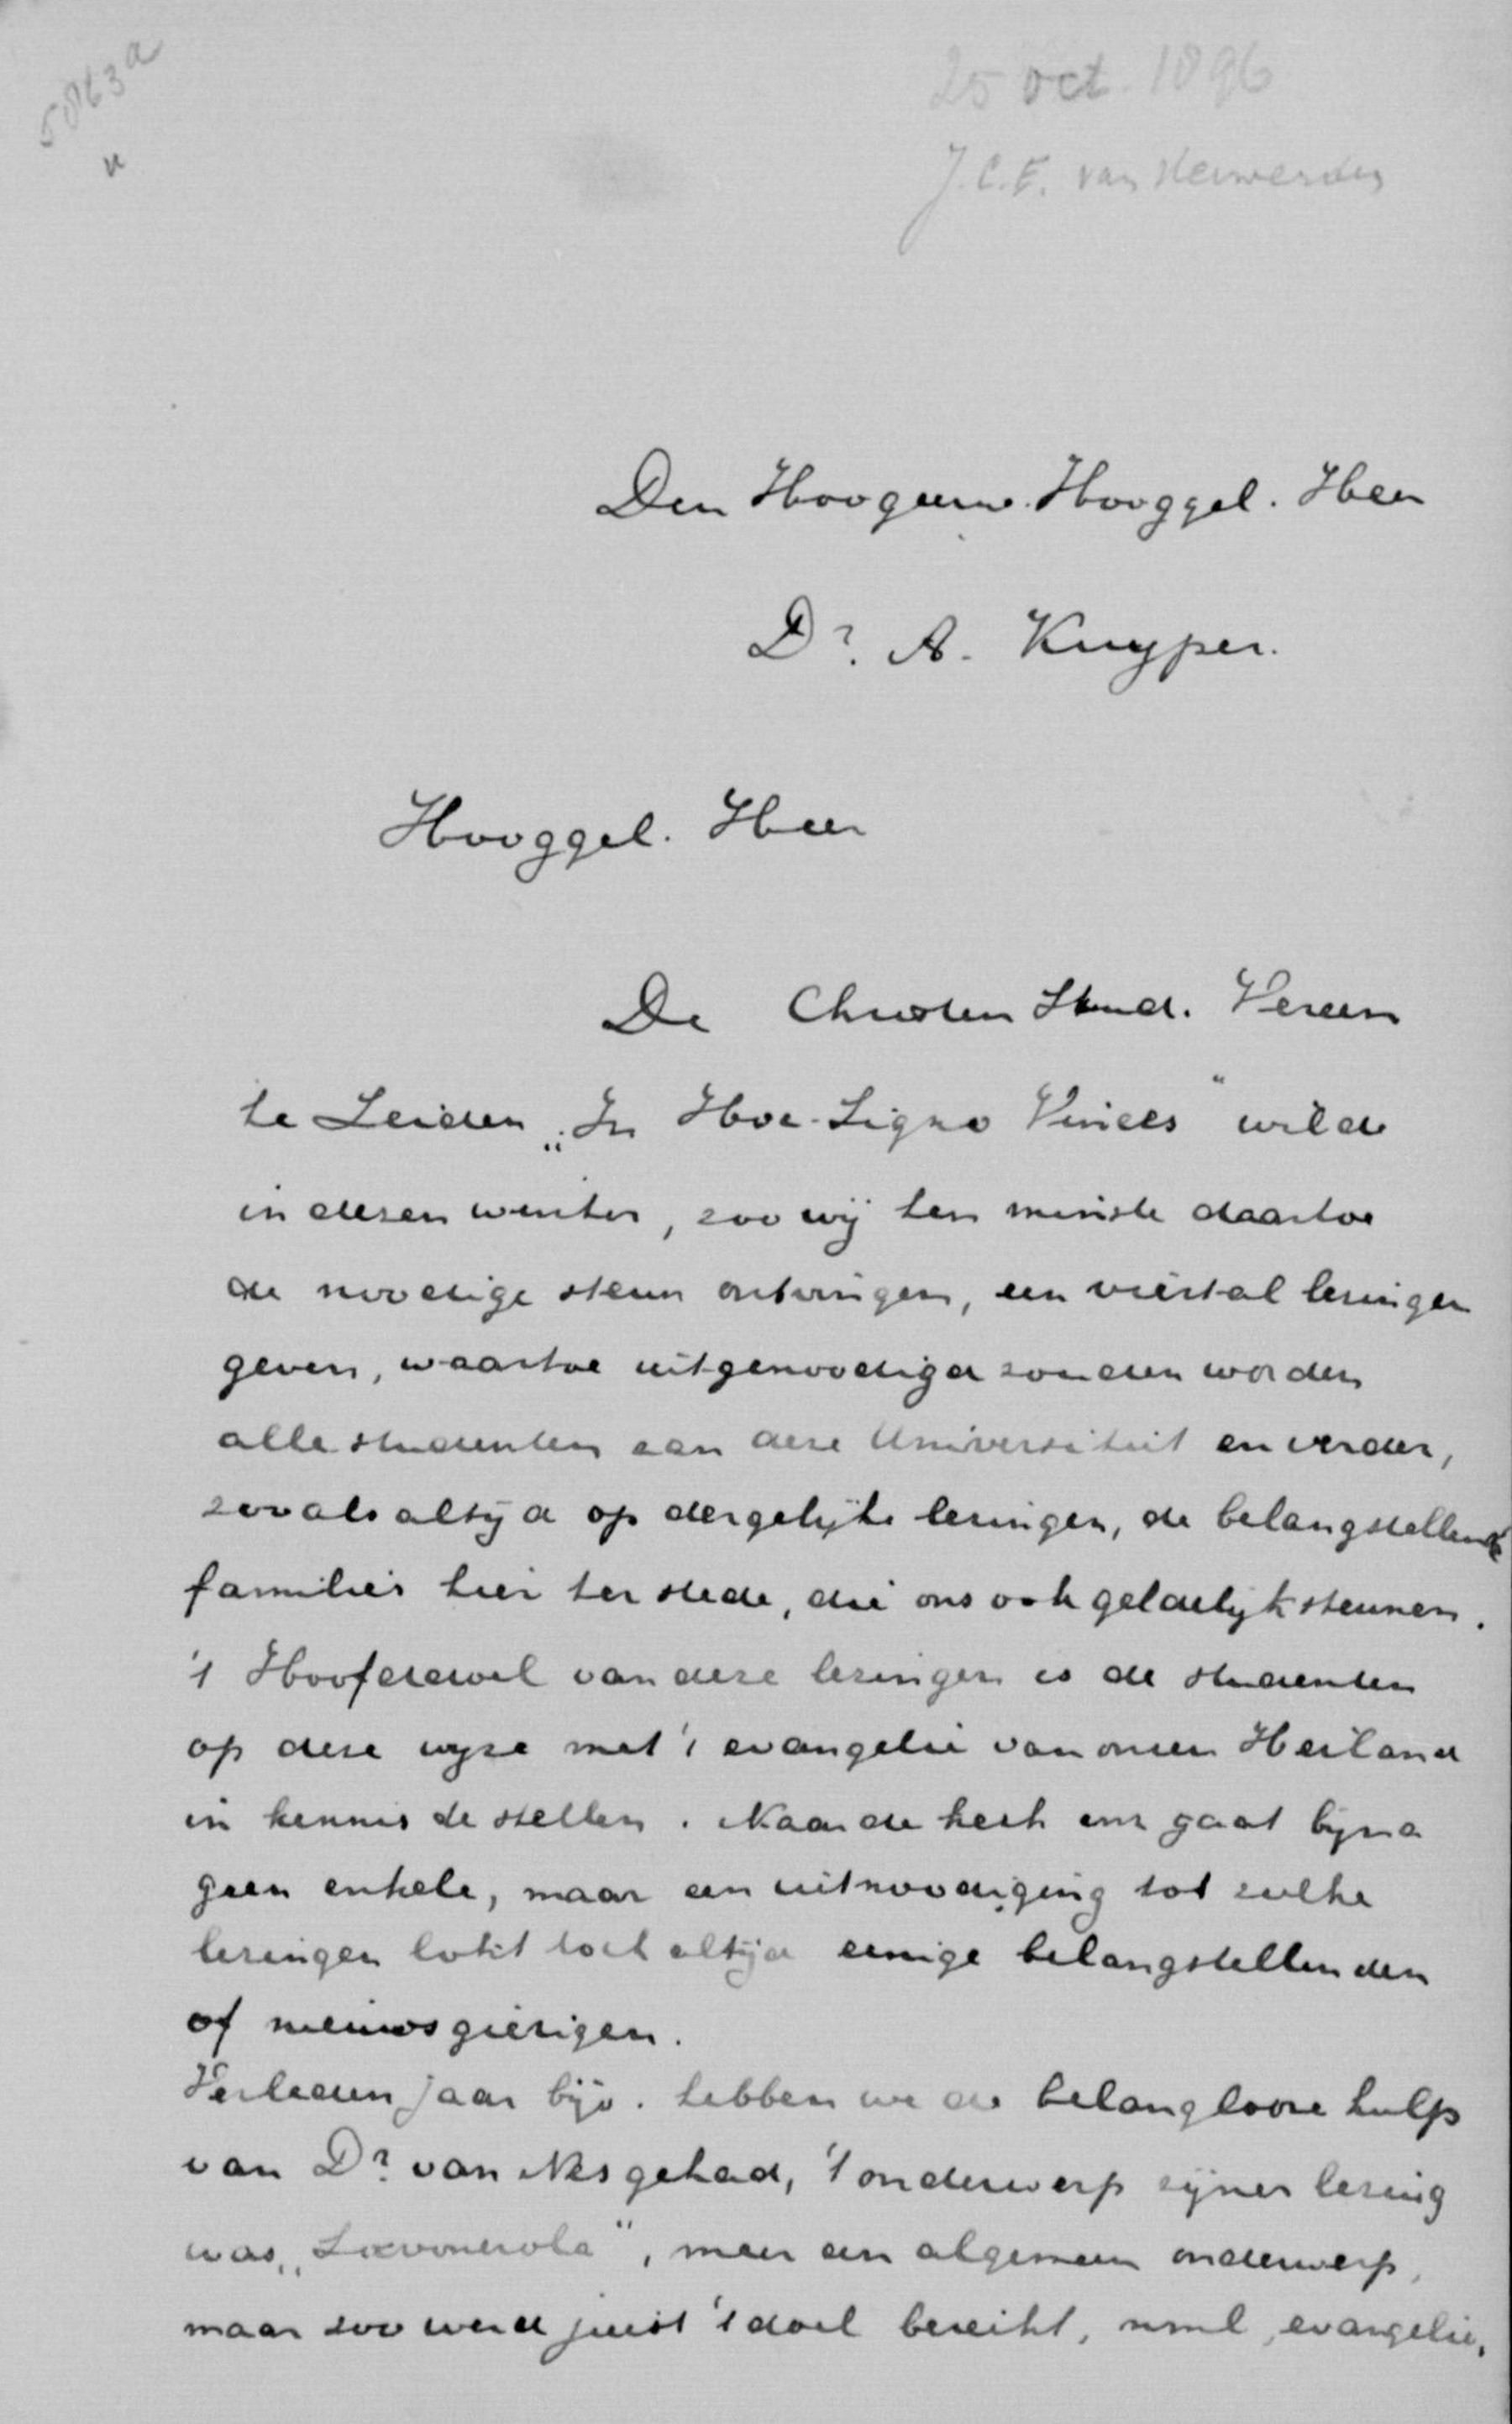 5863a
25 oct. 1896
J.C.E. van Herwerden
Den Hoogeerw. Hooggel. Heer
Dr. A. Kuyper.
Hooggel. Heer
De Christen Stud. Vereen
te Leiden „In Hoc Signo Vinces" wilde
in dezen winter, zoo wij ten minste daartoe
de noodige steun ontvingen, een viertal lezingen
geven, waartoe uitgenoodigd zouden worden
alle studenten aan deze Universiteit en verder,
zooals altijd op dergelijke lezingen, de belangstellende
familie's hier ter stede, die ons ook geldelijk steunen.
't Hoofddoel van deze lezingen is de studenten
op deze wijze met 't evangelie van onzen Heiland
in kennis te stellen. Naar de kerk enz gaat bijna
geen enkele, maar een uitnoodiging tot zulke
lezingen lokt toch altijd eenige belangstellenden
of nieuwsgierigen.
Verleden jaar bijv. hebben we de belanglooze hulp
van Dr. van Nes gehad, 't onderwerp zijner lezing
was „Savonarola", meer een algemeen onderwerp,
maar zoo werd juist 't doel bereikt, nml, evangelie,